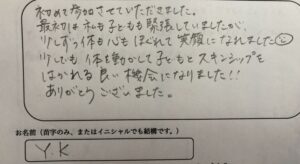 初めて参加させていただきました。
最初は私も子どもも緊張していましたが、
少しずつ体も心もほぐれて笑顔になれました☺
少しでも体を動かして子どもとスキンシップを
はかれる良い機会になりました!!
ありがとうございました。
お名前(苗字のみ、またはイニシャルでも結構です。)
Y.K